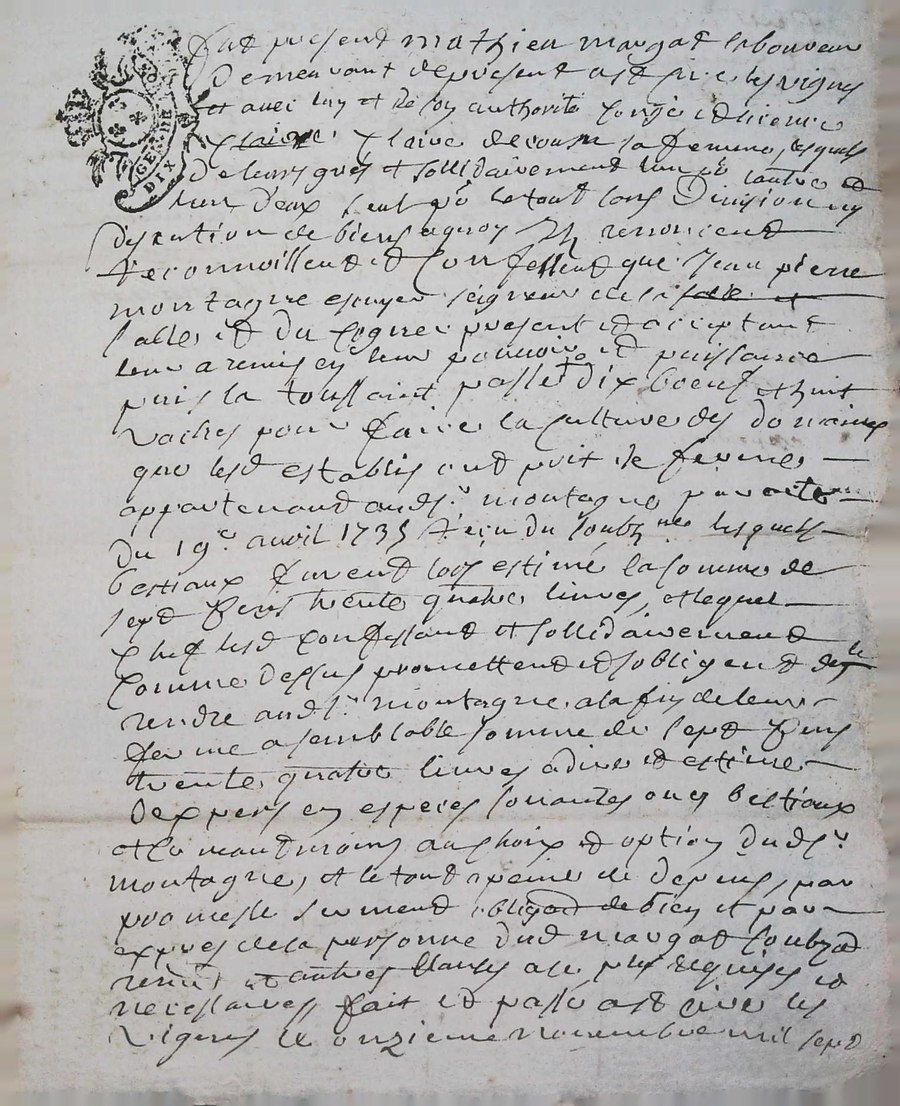 GEN. DE
DIX
fut present mathieu margat laboureur
demeurant de present a st cire les vignes
et avec luy et de son authorité congé et licence
claire de cousin sa femme, lesquels
de leurs gres et sollidairement l'un pr lautre et
lun d'eux seul pr le tout sans division ny
discution de biens aquoy ils renoncent
reconnoissent et confessent que Jean pierre
montagne escuyer seigneur de la salle et
salle, et du present et acceptant
leur a remis en leur pouvoir et puissance
puis la toussaint passé dix boeufs et huit
vaches pour faire la culture des domaines
que lesd establis ont prit de ferme
appartenant aud sr montagne par acte
du 19e avril 1735 reçu du soubzné lesquels
bestiaux furent lors estimé la somme de
sept cens trente quatre livres, et lequel
chef lesd confessant et sollidairement
comme dessus promettent et sobligent de
rendre aud sr montagne a la fin de leur
ferme a semblable somme de sept cens
trente quatre livres a dire et estime
dexpers en especes sonantes ou en bestiaux
et au choix et option dud sr
montagne, et le tout a peine de depens, par
promesse serment obligaon de bien et par
expres de la personne dud margat soubzon
renon et autres clauses a ce plus requises et
necessaires, fait et passé a st cire les
vignes le onzieme novembre mil sept